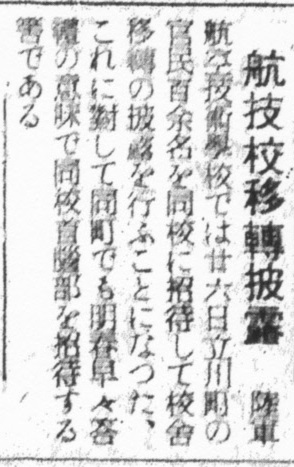 航技校移轉披露 陸軍
航空技術學校では廿六日立川町の
官民百余名を同校に招待して校舎
移轉の披露を行ふことになつた、
これに對して同町でも明春早々答
禮の意味で同校首腦部を招待する
筈である